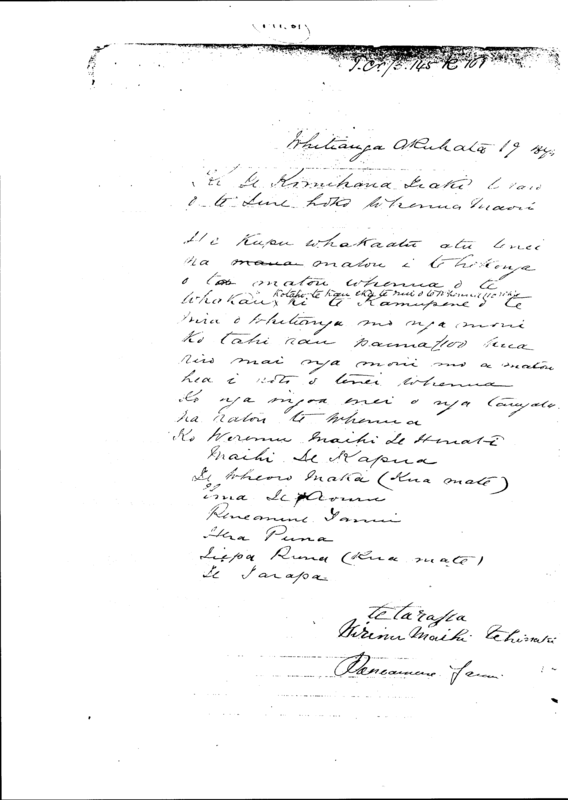 (1.11.01)
T.C.1/2.145 R 101
Whitianga Akuhata 19
Ki Te Komihana Tiaki
o te hoko Whenua Maori
He Kupu whakaatu atu tenei
na matou i te hokonga
o to matou whenua o te
Whakau ki te Kamupene o te
Kotahi te kau eka te nui o te Whenua
Mira o Whitianga mo nga moni
Ko tahi rau pauna £100 kua
riro mai nga moni mo a matou
hea i roto o tenei whenua
Ko nga ingoa enei o nga tangata
na ratou te Whenua
Ko Wiremu Maihi Te Hinaki
Maihi Te Kapua
Te Wheoro Maka (Kua mate)
Ema Te Aouru
Reneamene Tanui
Hera Puna
Riepa Puna (Kua mate)
Te Tarapa
te tarapa
Wirimu Maihi Tehinaki
Raneamene Tanui